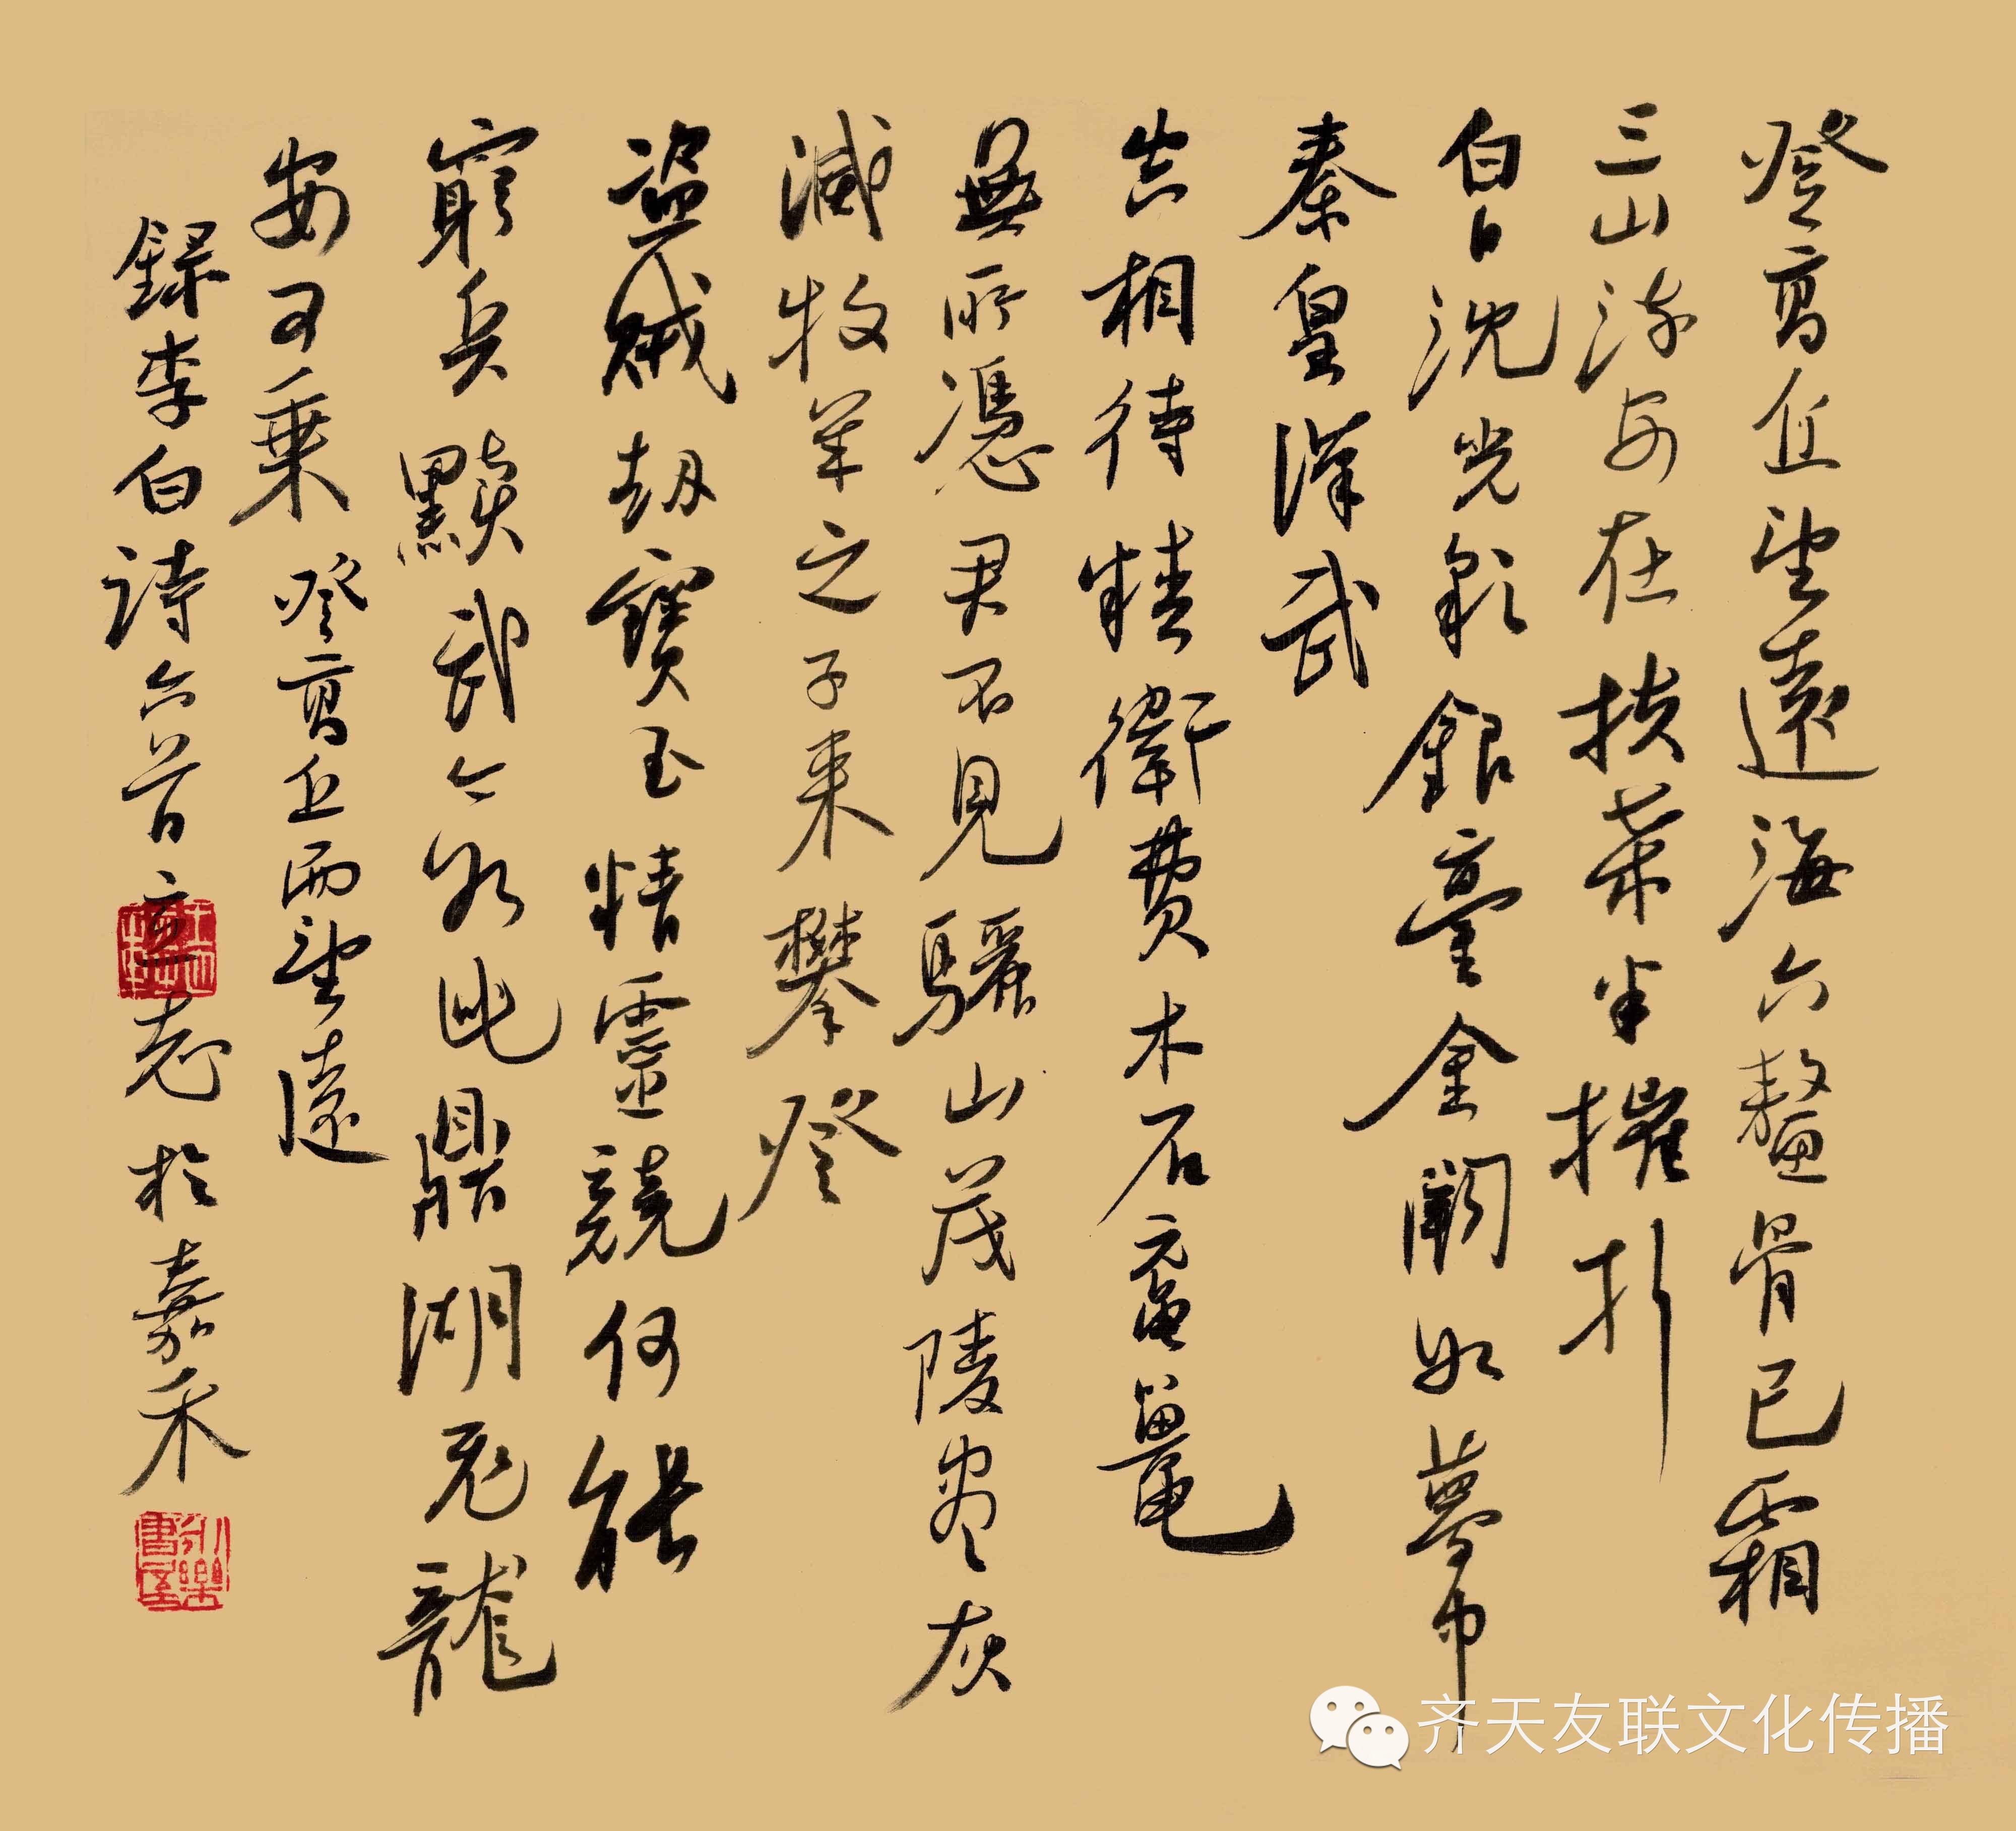 登高丘望遠海六鼇骨已霜
三山流安在扶桑半摧折
白日沈光彩銀臺金闕如夢中
秦皇漢武
空相待精衛費木石黿鼉
無所憑君不見驪山茂陵盡灰
滅牧羊之子来攀登
盜賊劫寶玉精靈競何能
窮兵黷武今如此鼎湖飛龍
安可乘 登高丘而望遠
録李白詩六首 老於嘉禾
齐天友联文化传播